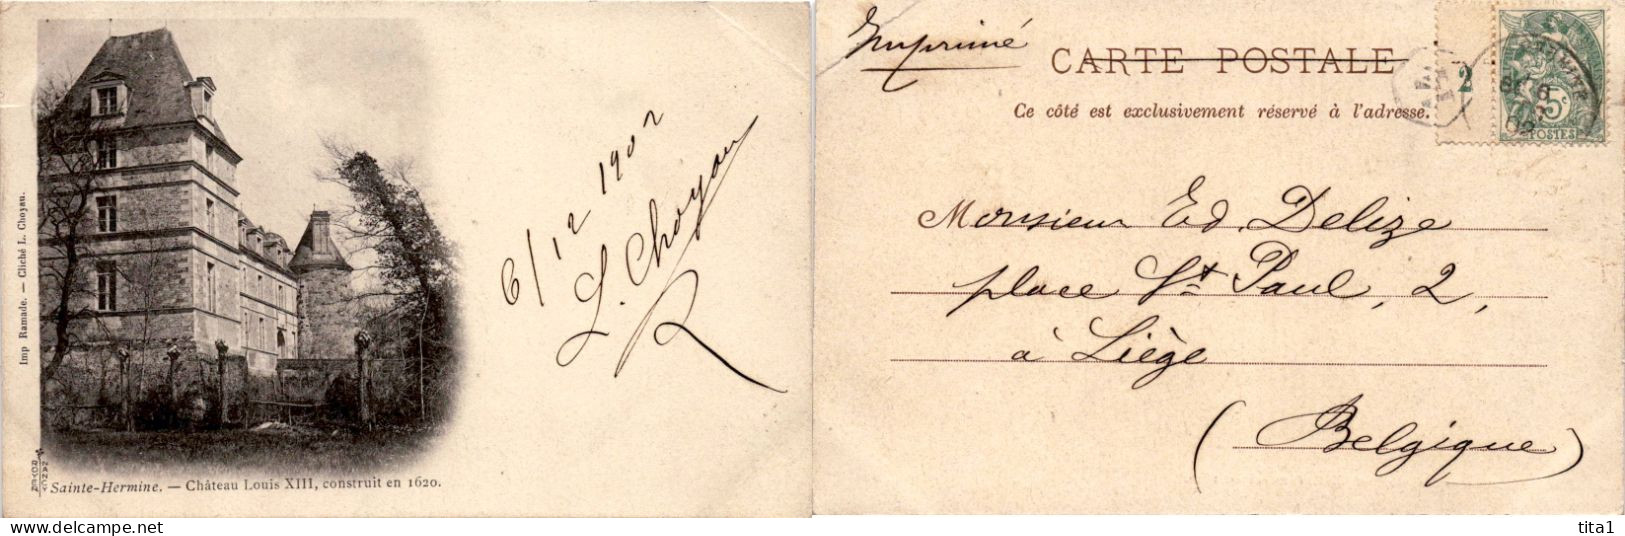 Imp Ramade. — Cliché L. Choyau.
Sainte-Hermine. — Château Louis XIII, construit en 1620.
6/12 1902
L. Choyau
Imprimé
CARTE POSTALE
Ce côté est exclusivement réservé à l'adresse.
2
5c
POSTES
Monsieur Ed. Delize
place St Paul, 2,
à Liège
(Belgique)
tita1